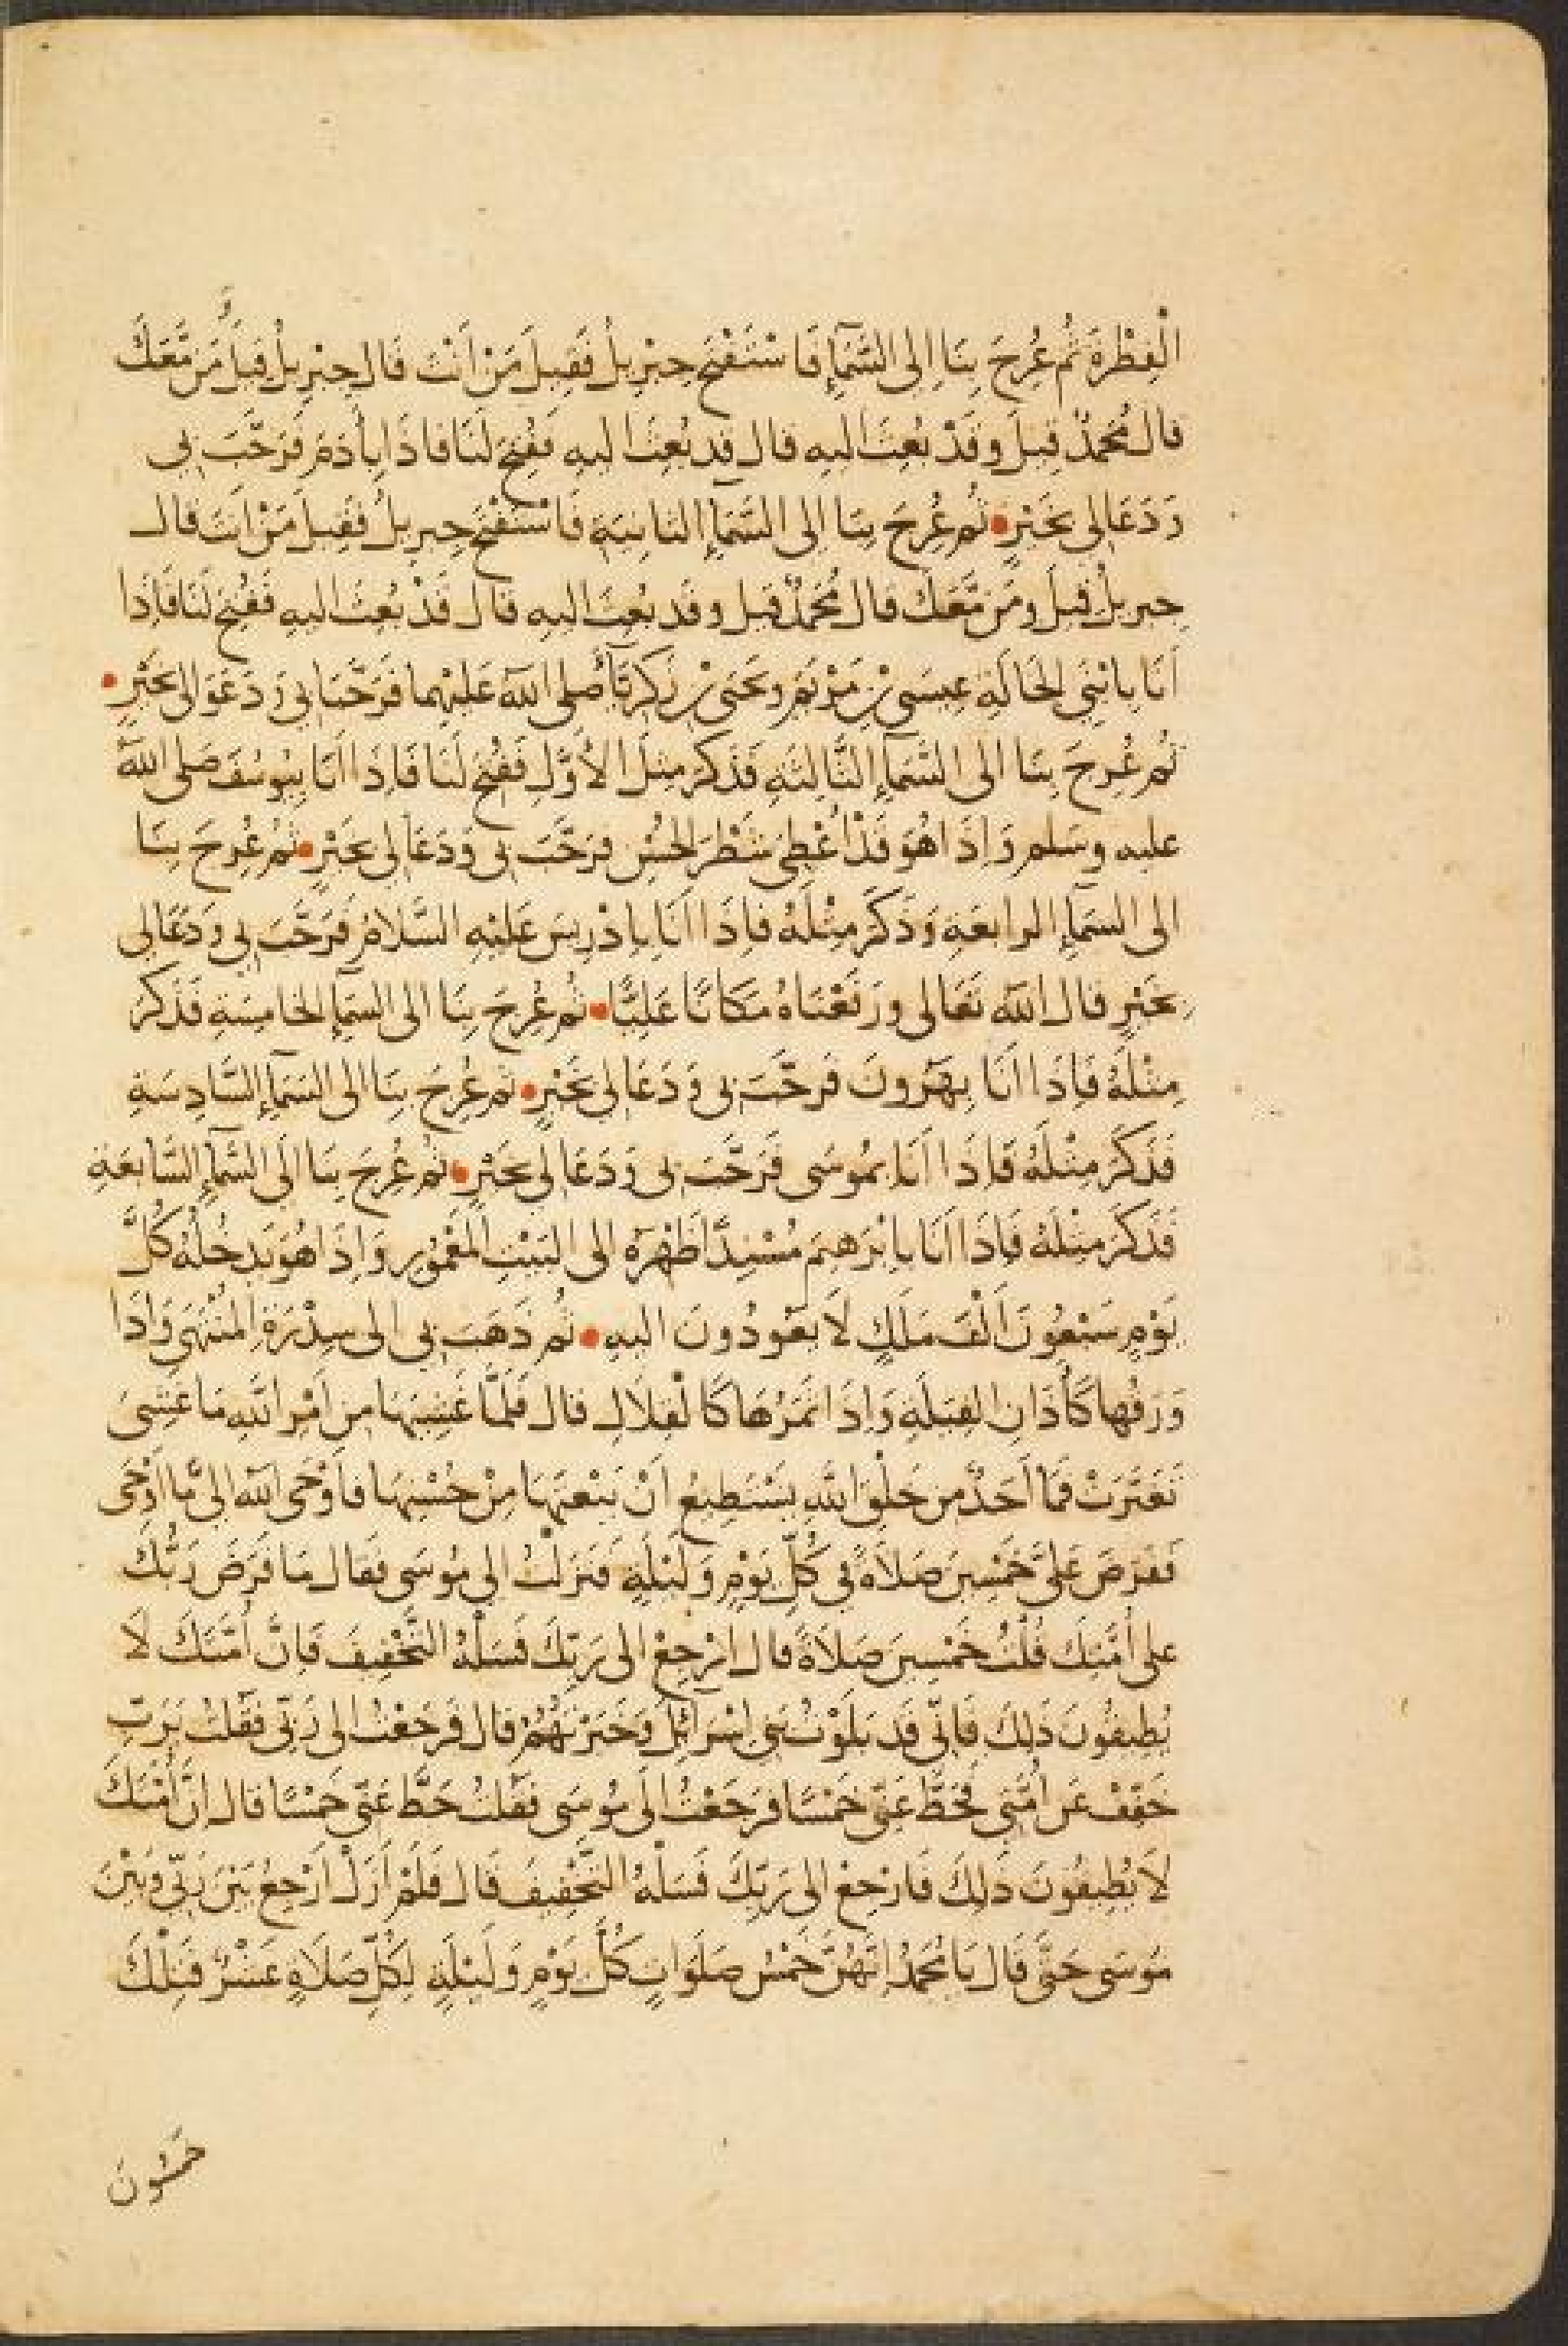 الْفِطْرَةَ ثُم عُرِجَ بِنَا اِلى السَّمَآءِ فَاسْتَفْتَحَ جِبْرِيلُ فَقِيلَ مَنْ اَنْتَ قَال جِبْرِيلُ قِيلَ وَمَن مَّعَكَ
قال مُحَمدٌ قِيلَ وقَدْ بُعِثَ اليهِ قال قد بُعِثَ اليهِ فَفُتِحَ لَنَا فاذَا بِاٰدَمَ فَرَحَّبَ بى
وَدَعَا لِى بِخَيْرٍ ثُم عُرِجَ بِنَا الى السَّمَآءِ الثانِيَةِ فَاسْتَفْتَحَ جِبرِيلُ فَقِيلَ مَنْ اَنتَ قال
جِبريلُ قِيلَ ومَن مَّعَكَ قال مُحَمَّدٌ قيل وقد بُعِثَ اليهِ قال قَدْ بُعِثَ اليهِ فَفُتِحَ لَنَا فَاِذَا
اَنَا بِابْنَىِ الخَالَةِ عِيسَى بْنِ مَرْيَمَ ويَحْيَى بْنِ زَكَرِيَّآءَ صلى الله عَليْهما فَرَحَّبَا بى وَدَعَوَا لى بِخَيْرٍ
ثُم عُرِجَ بِنَا الى السَّمَآءِ الثَّالِثَةِ فَذَكَرَ مِثلَ الاَوَّلِ فَفُتِحَ لَنَا فَاِذَا اَنَا بِيُوسُفَ صَلى اللهُ
عليه وسَلم وَاِذَا هُوَ قَدْ اُعْطِىَ شَطْرَ الحُسْنِ فرَحَّبَ بى وَدَعَا لِى بِخَيْرٍ ثُم عُرِجَ بِنَا
الى السمَآءِ الرابِعَةِ وَذَكَرَ مِثْلَهُ فاِذَا اَنَا بِاِدْرِيسَ عَلَيْهِ السَّلامُ فَرَحَّبَ بِى وَدَعَا لِى
بِخَيْرٍ قال اللهُ تَعَالى ورَفَعْنَاهُ مَكَانًا عَلِيًّا ثُم عُرِجَ بِنَا الى السمَآءِ الخامِسَةِ فَذَكَرَ
مِثْلَهُ فَاِذَا اَنَا بِهَرُونَ فَرَحَّبَ بى وَدَعَا لى بِخَيْرٍ ثم عُرِجَ بِنَا الى السَمَآءِ السَّادِسَةِ
فَذَكَرَ مِثْلَهُ فَاِذَا اَنَا بِمُوسَى فَرَحَّبَ بى وَدَعَا لِى بِخَيْرٍ ثُم عُرِجَ بِنَا اِلَى السَّمَآءِ السَّابِعَةِ
فَذَكَرَ مِثْلَهُ فَاِذَا اَنَا بِاِبْرَهِيمَ مُسْنِدًا ظَهْرَهُ الى البَيْتِ المَعْمُورِ وَاِذَا هُوَ يَدخُلُهُ كُلَّ
يَوْمٍ سَبْعُونَ اَلْفَ مَلَكٍ لاَ يَعُودُونَ اليهِ ثُم ذَهَبَ بِى الى سِدْرَةِ المُنْتَهَى وَاِذَا
وَرَقُها كَاٰذَانِ الفِيَلَةِ وَاِذَا ثَمَرُهَا كَالْقِلالِ قال فَلَمَّا غَشِيَهَا مِن اَمْرِ اللهِ مَا غَشِىَ
تَغَيَّرَتْ فَمَا اَحَدٌ مِن خَلْقِ اللهِ يَسْتَطِيعُ اَنْ يَنْعَتَهَا مِنْ حُسْنِهَا فاَوْحَى اللهُ الىَّ مَّا اَوْحَى
فَفَرَضَ عَلىَّ خَمْسِينَ صَلاَةً فى كُلِّ يَوْمٍ وَلَيْلَةٍ فَنَزَلْتُ الى مُوسَى فقال مَا فَرَضَ رَبُّكَ
على اُمَّتِكَ قُلْتُ خَمْسِينَ صَلاَةً قال ارْجِعْ الى رَبِّكَ فَسَلْهُ التَّخْفِيفَ فَاِنَّ اُمَّتَكَ لاَ
يُطِيقُونَ ذَلِكَ فَاِنِّى قَد بَلَوْتُ بَنِى اِسْرَآئِلَ وَخَبَرْتُهُمْ قال فَرَجَعْتُ الى رَبِّى فَقُلتُ يَرَبِّ
خَفِّفْ عَن اُمَّتِى فَحَطَّ عَنِّى خَمْسًا فرَجَعْتُ اِلَى مُوسَى فقُلتُ حَطَّ عَنِّى خَمْسًا قال اِنَّ اُمَّتَكَ
لاَ يُطِيقُونَ ذَلِكَ فَارْجِعْ الى رَبِّكَ فَسَلْهُ التَّخْفِيفَ قَال فَلَمْ اَزَلْ اَرْجِعُ بَيْنَ رَبِّى وَبَيْنَ
مُوسَى حَتَّى قَال يَا مُحَمدُ اِنَّهُنَّ خَمْسُ صَلَوَاتٍ كُلَّ يَوْمٍ وَلَيْلَةٍ لِكُلِّ صَلاَةٍ عَشْرٌ فَتِلْكَ
خَمسُونَ